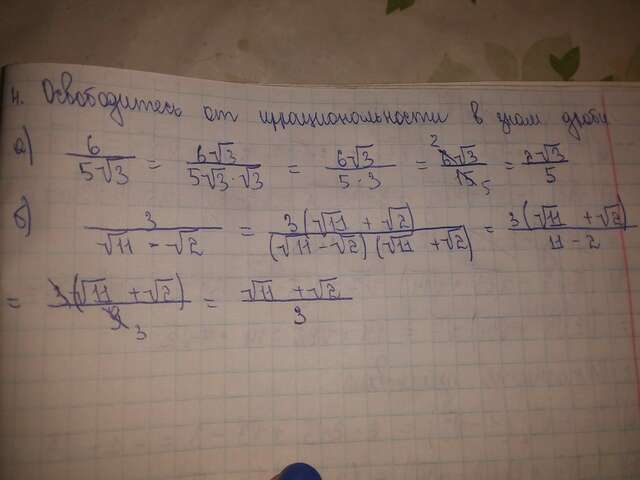 4. Освободитесь от иррациональности в знам дроби
а) 6/5√3 = 6√3/5√3·√3 = 6√3/5·3 = 2 6√3/15 5 = 2√3/5
б) 3/√11 - √2 = 3(√11 + √2)/(√11 - √2)(√11 + √2) = 3(√11 + √2)/11 - 2
= 3(√11 + √2)/9 3 = √11 + √2/3